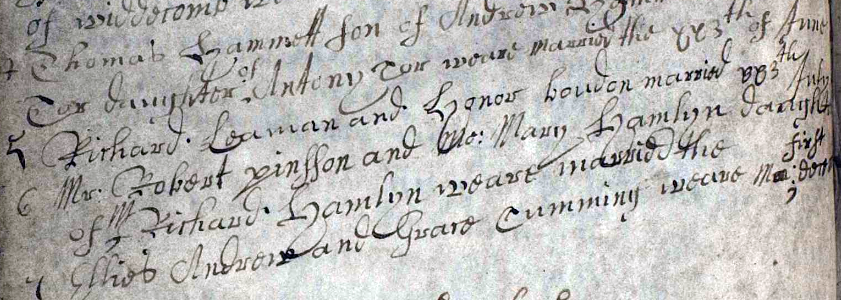 of widdecomb
4 Thomas Hammett son of Andrew
Tor daughter of Antony Tor weare married the xx3th of June
5 Richard Leaman and Honor boudon married xx3th July
6 Mr: Robert pinsson and Mary Hamlyn daught
of Mr Richard Hamlyn weare married the first
7 Ellies Andrew and Grace Cumming weare